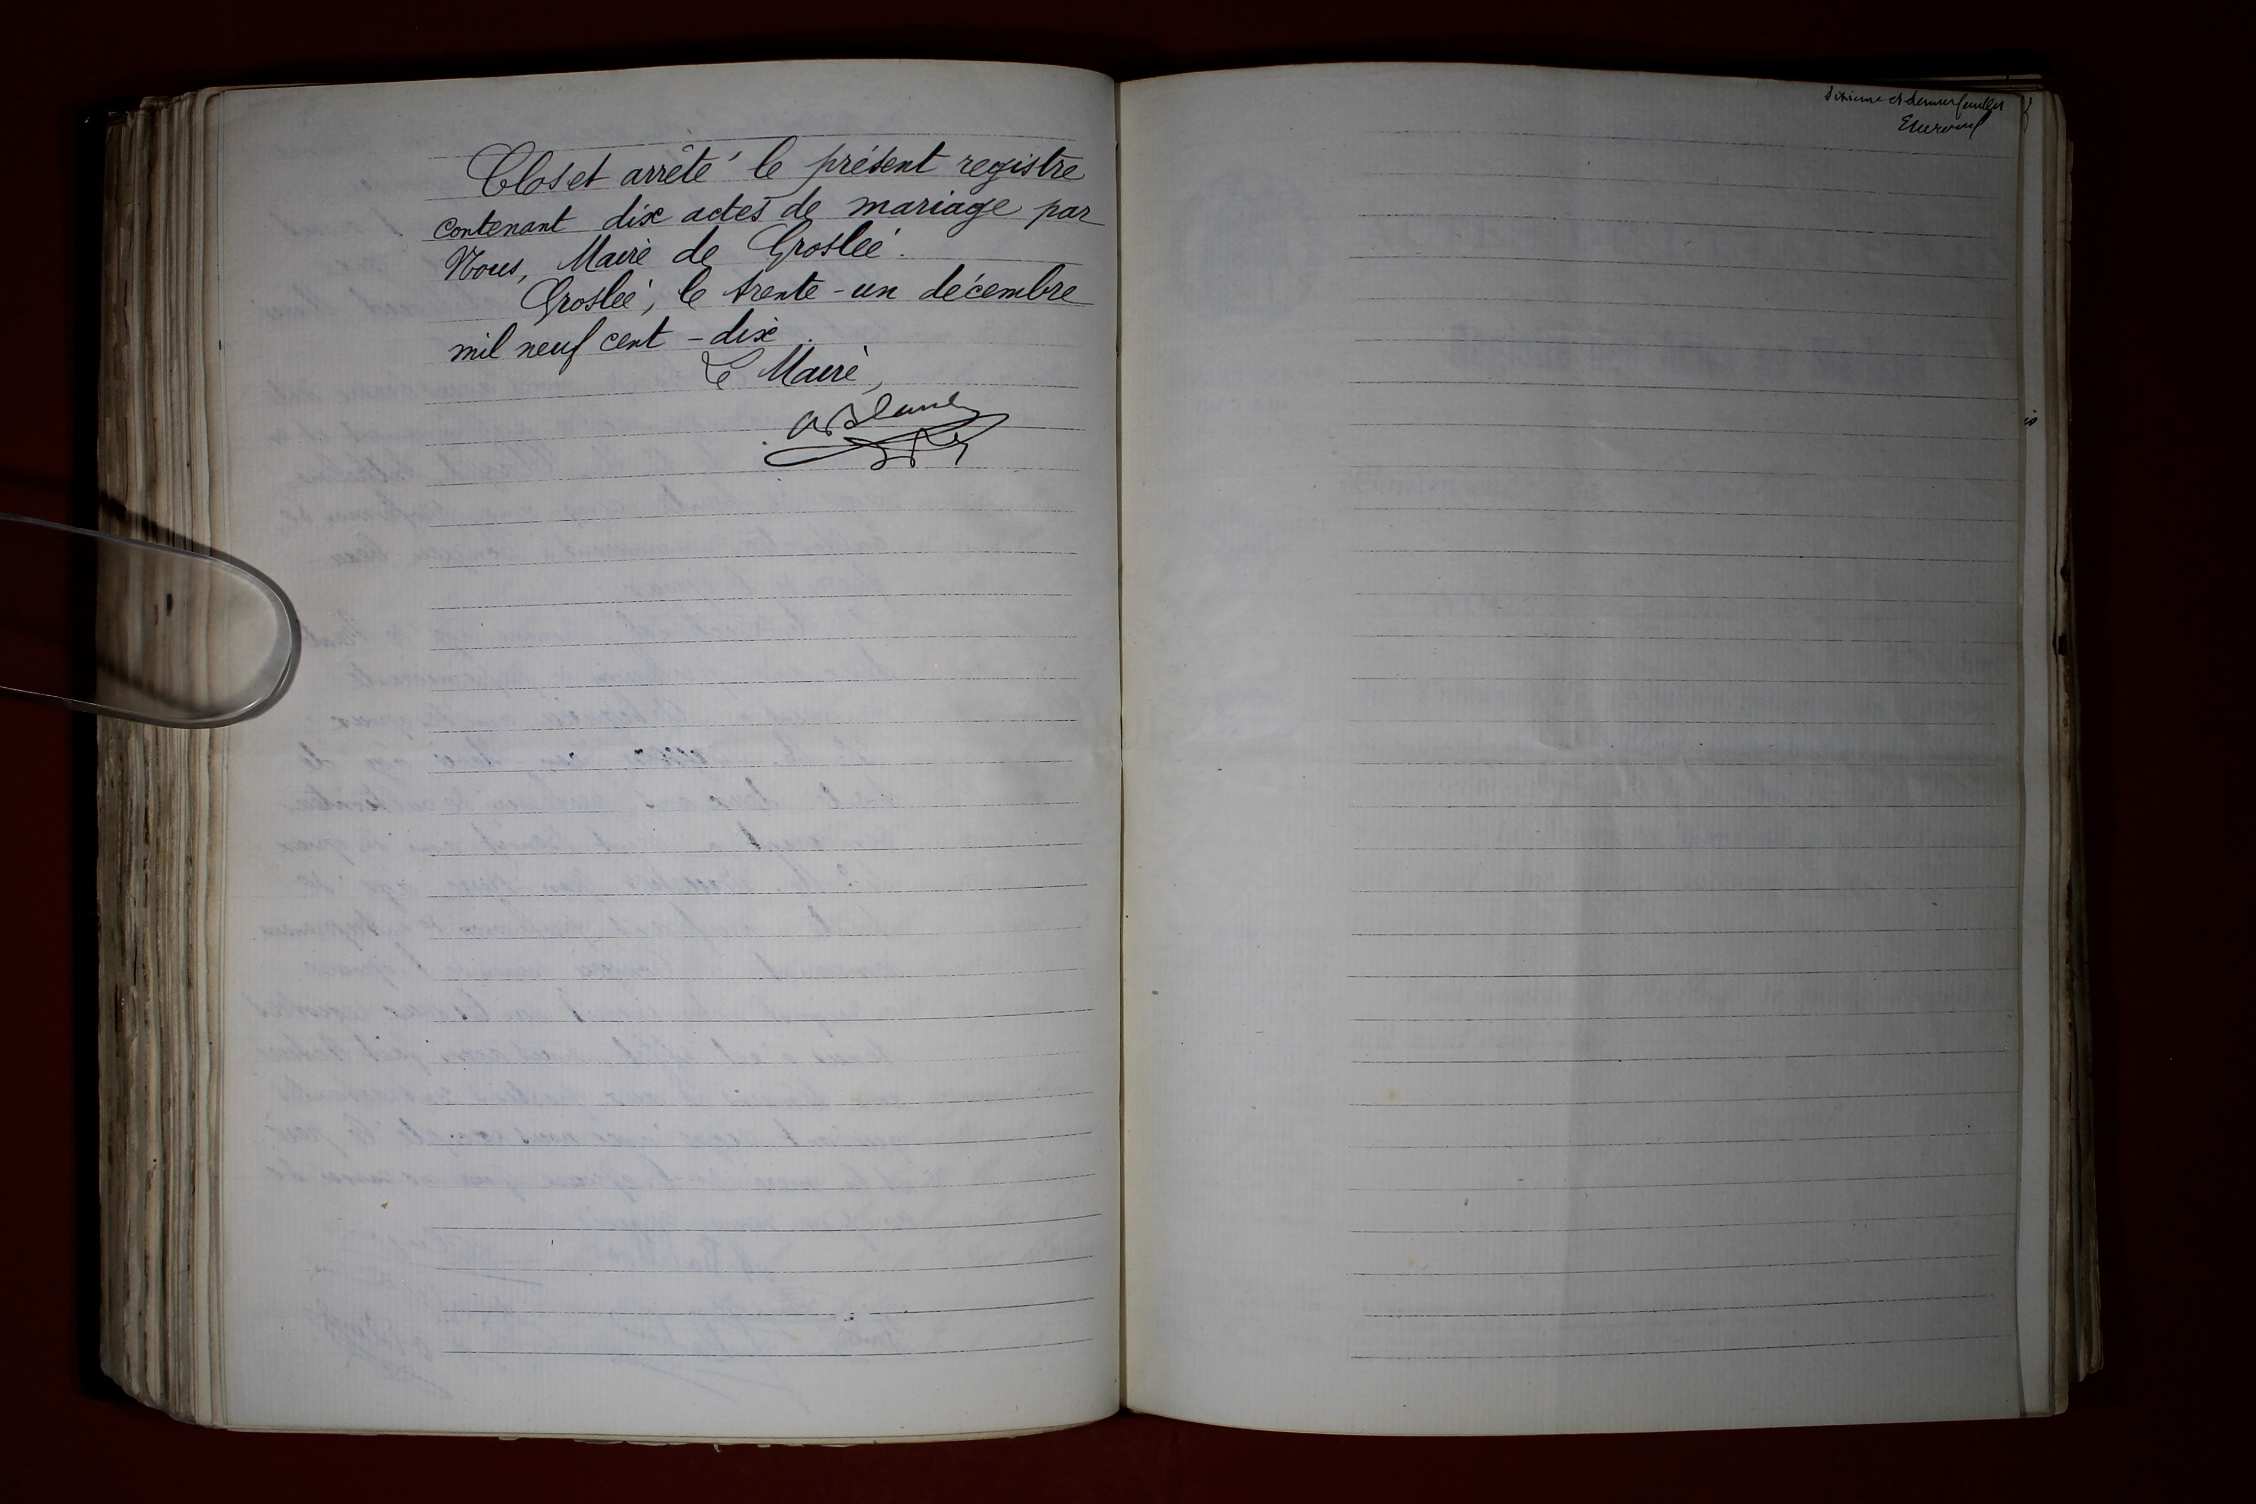 Clos et arrêté le présent registre
contenant dix actes de mariage par
Nous, Maire de Groslée.
Groslée, le trente-un décembre
mil neuf cent-dix.
Le Maire,
dixième et dernier feuillet